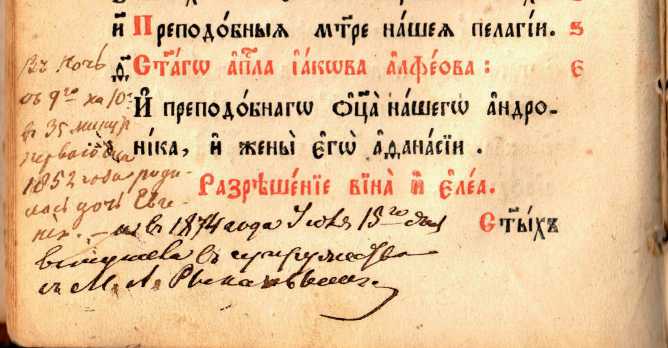 и҆ Преподо́бныѧ мт҃ре на́шеѧ пелагі́и. ѕ
ѳ҃ Ст҃а́гѡ а҆п҃ла і҆а́кѡва а҆лфе́ова : є
И҆ преподо́бнагѡ ѻ҆ц҃а̀ на́шегѡ а҆ндро-
ні́ка, и҆ жены̀ є҆гѡ̀ а҆ѳана́сїи .
Разрѣше́нїе вїна̀ и҆ є҆ле́а.
Ст҃ы́хъ
Въ ночь
съ 9го на 10е
в 35 минут
перваго
1852 года роди
лась дочь Евге
нія. — и в 1874 года Іюля 15го дня
вступила в супружество
съ М. А.